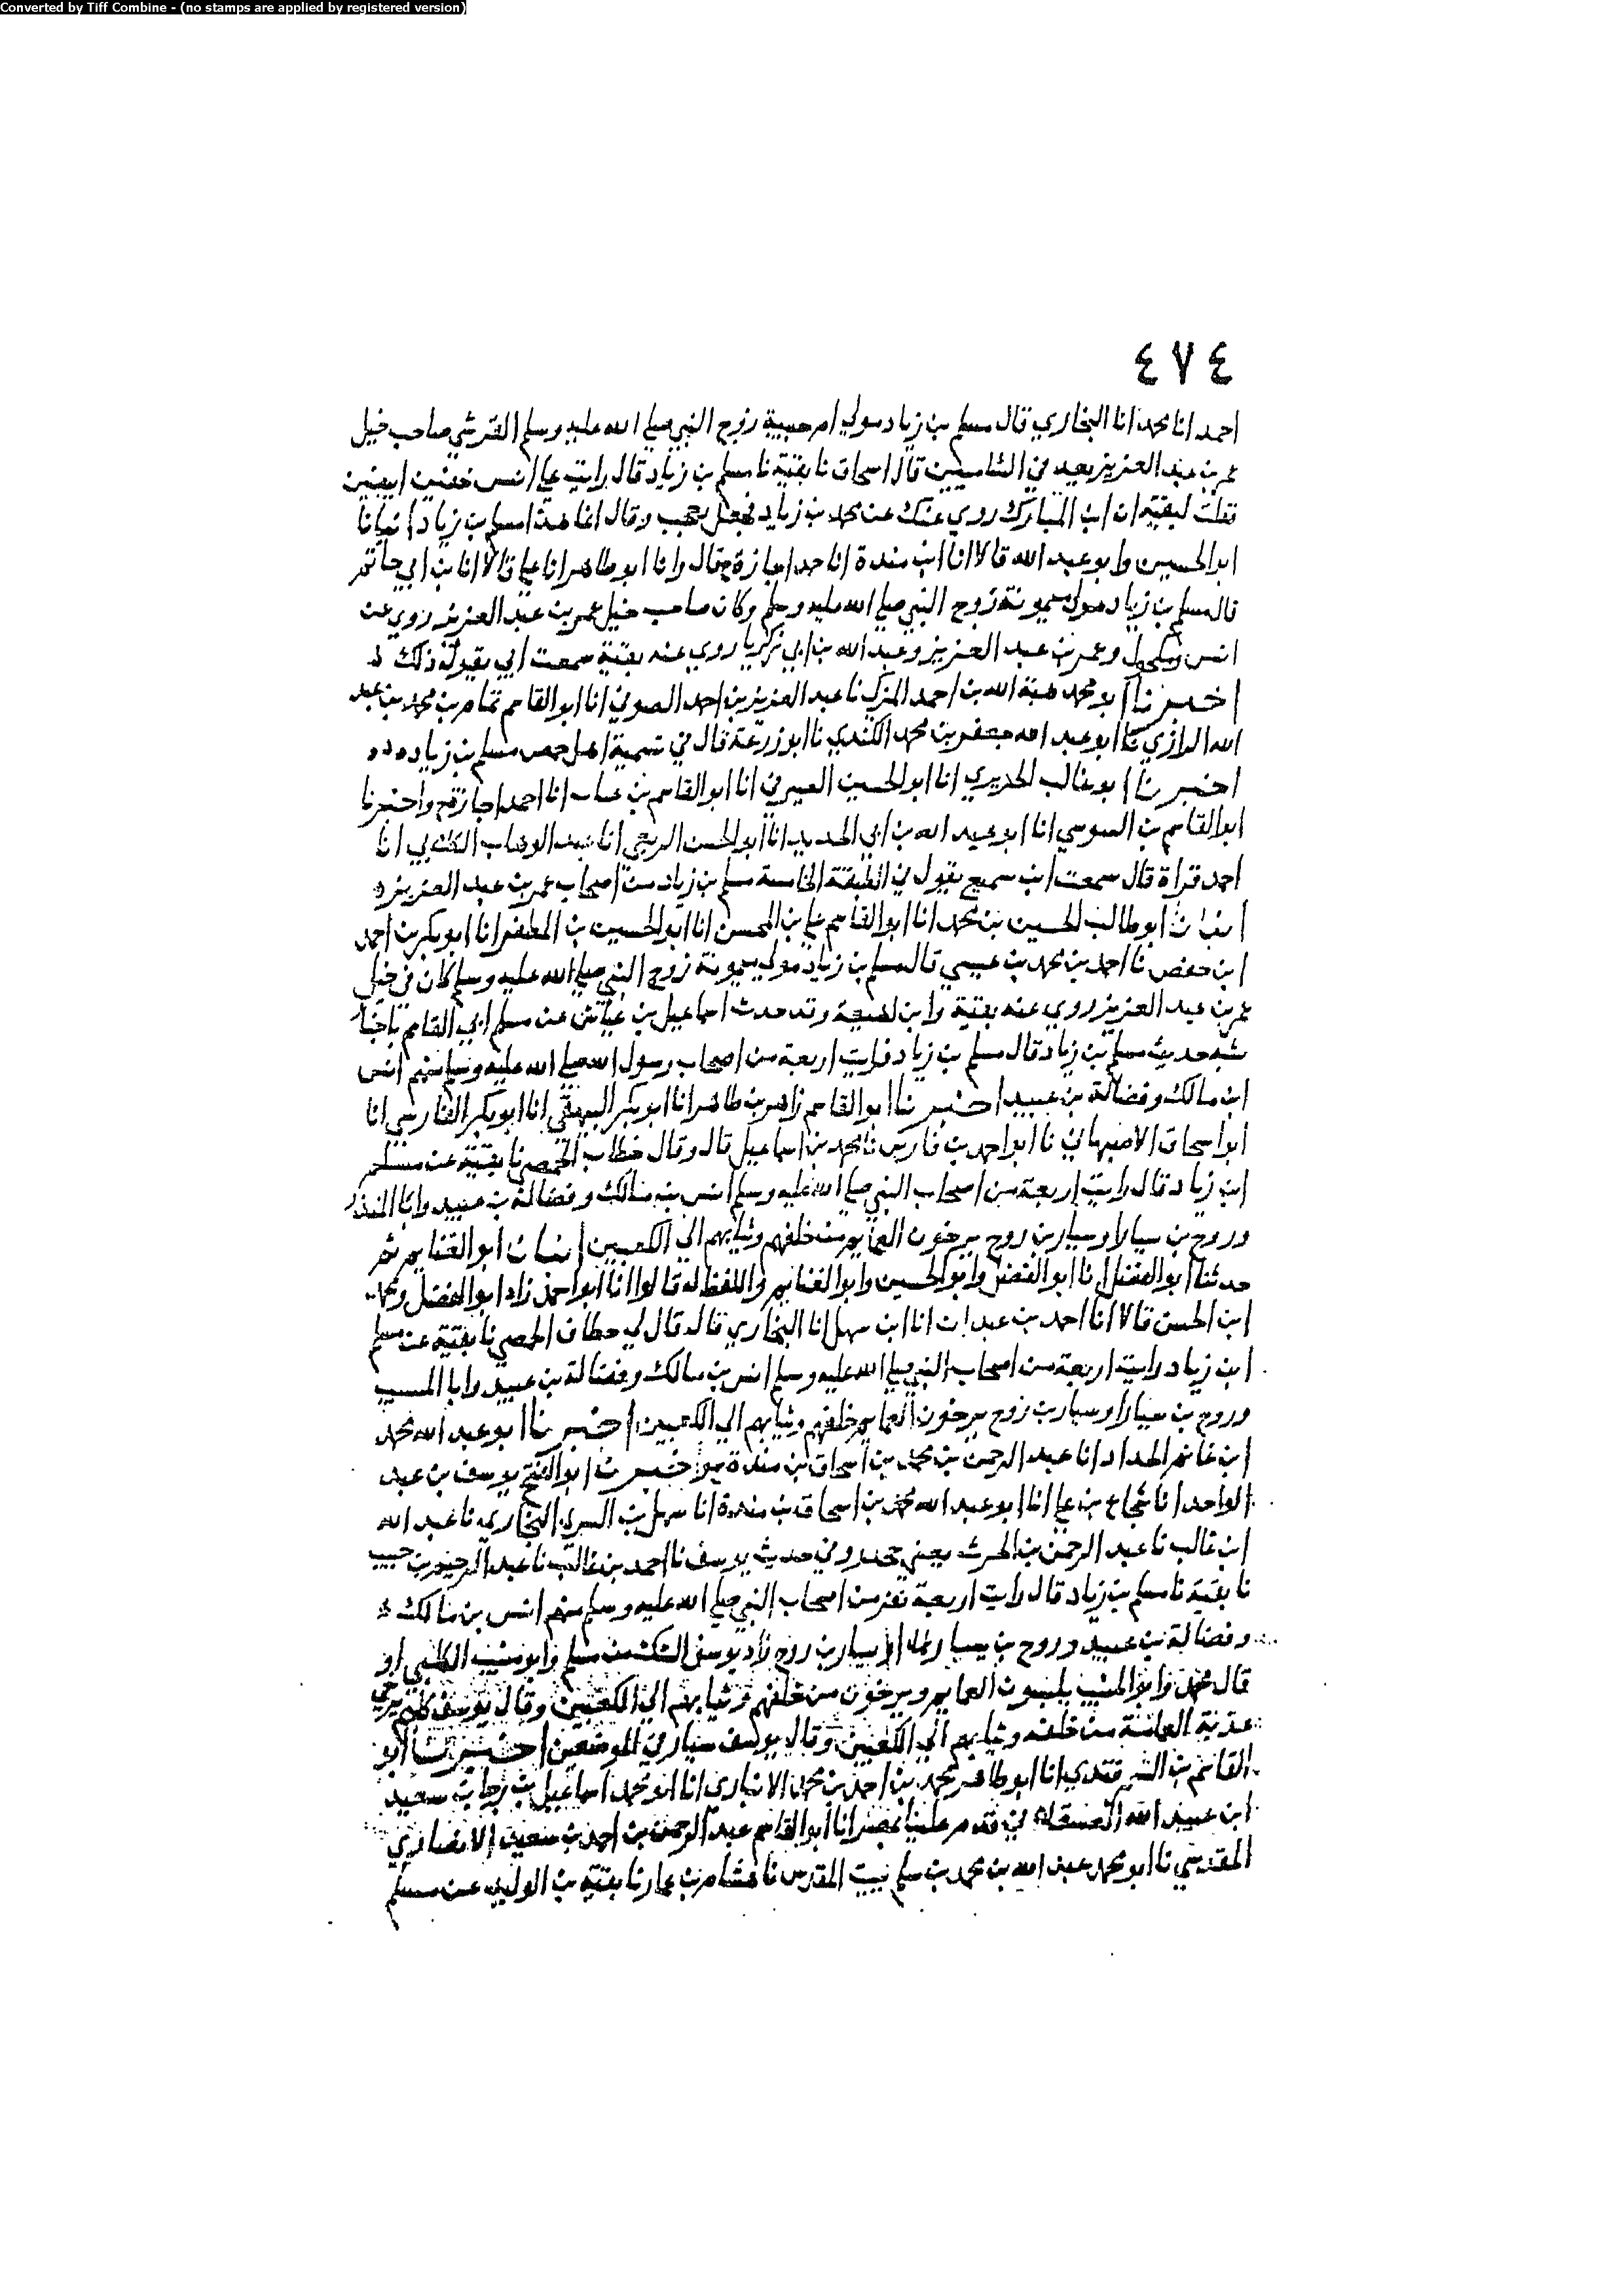 Converted by Tiff Combine - (no stamps are applied by registered version)
٤٧٤
احمد انا محمد انا البخاري قال مسلم بن زياد مولي ام حبيبة زوج النبي صلي الله عليه وسلم القرشي صاحب خيل
عمر بن عبد العزيز يعد في الشاميين قال اسحاق نا بقية نا مسلم بن زياد قال رايت علي انس خفين ابيضين
فقلت لبقية ان ابن المبارك روي عنك عن محمد بن زياد فجعل يعجب وقال انما هذا مسلم بن زياد انبانا
ابو الحسين وابو عبد الله قالا انا ابن مندة انا حمد اجازة ح قال وانا ابو طاهر انا علي قالا انا بن ابي حاتم
قال مسلم بن زياد مولي ميمونة زوج النبي صلي الله عليه وسلم وكان صاحب خيل عمر بن عبد العزيز روي عن
انس ومكحول وعمر بن عبد العزيز وعبد الله بن ابي زكريا روي عنه بقية سمعت ابي يقول ذلك
اخبرنا ابو محمد هبة الله بن احمد المزكي نا عبد العزيز بن احمد الصوفي انا ابو القاسم تمام بن محمد بن عبد
الله الرازي نا ابو عبد الله جعفر بن محمد الكندي نا ابو زرعة قال في تسمية اهل حمص مسلم بن زياد
اخبرنا ابو غالب الحريري انا ابو الحسين الصيرفي انا ابو القاسم بن عتاب انا احمد اجازة ح واخبرنا
ابو القاسم بن السوسي انا ابو عبد الله بن ابي الحديد انا ابو الحسن الربعي انا عبد الوهاب الكلابي انا
احمد قراة قال سمعت ابن سميع يقول في الطبقة الخامسة مسلم بن زياد من اصحاب عمر بن عبد العزيز
انبانا ابو طالب الحسين بن محمد انا ابو القاسم علي بن المحسن انا ابو الحسين بن المظفر انا ابو بكر بن احمد
ابن حفص نا احمد بن محمد بن عيسي قال مسلم بن زياد مولي ميمونة زوج النبي صلي الله عليه وسلم كان في خيل
عمر بن عبد العزيز روي عنه بقية وابن لهيعة وقد حدث اسماعيل بن عياش عن مسلم ابي القاسم باخبار
شبه حديث مسلم بن زياد قال مسلم بن زياد فرايت اربعة من اصحاب رسول الله صلي الله عليه وسلم منهم انس
ابن مالك وفضالة بن عبيد اخبرنا ابو القاسم زاهر بن طاهر انا ابو بكر البيهقي انا ابو بكر الفارسي انا
ابو اسحاق الاصبهاني نا ابو احمد بن فارس نا محمد بن اسماعيل قال وقال خطاب الحمصي نا بقية عن مسلم
ابن زياد قال رايت اربعة من اصحاب النبي صلي الله عليه وسلم انس بن مالك وفضالة بن عبيد وابا المنذر
وروح بن سيار او سيار بن روح يرخون العمايم من خلفهم وثيابهم الي الكعبين انبانا ابو الغنايم ثم
حدثنا ابو الفضل انا ابو الفضل وابو الحسين وابو الغنايم واللفظ له قالوا انا ابو احمد زاد ابو الفضل ومحمد
ابن الحسن قالا انا احمد بن عبدان انا ابن سهل انا البخاري قال قال لي خطاب الحمصي نا بقية عن مسلم
ابن زياد رايت اربعة من اصحاب النبي صلي الله عليه وسلم انس بن مالك وفضالة بن عبيد وابا المسيب
وروح بن سيار او سيار بن روح يرخون العمايم خلفهم وثيابهم الي الكعبين اخبرنا ابو عبد الله محمد
ابن غانم الحداد انا عبد الرحمن بن محمد بن اسحاق بن مندة ح واخبرنا ابو الفتح يوسف بن عبد
الواحد انا شجاع بن علي انا ابو عبد الله محمد بن اسحاق بن مندة انا سهل بن السري البخاري نا عبد الله
ابن غالب نا عبد الرحمن بن الحرث يعني جحدر وفي حديث يوسف نا احمد بن غالب نا عبد الرحيم بن حبيب
نا بقية نا مسلم بن زياد قال رايت اربعة نفر من اصحاب النبي صلي الله عليه وسلم منهم انس بن مالك
وفضالة بن عبيد وروح بن يسار او سيار بن روح زاد يوسف الشك من مسلم وابو منيب الكلبي او
قال محمد وابو المنيب يلبسون العمايم ويرخون من خلفهم وثيابهم الي الكعبين وقال يوسف يرخي
عذبة العمامة من خلفه وثيابهم الي الكعبين وقال يوسف سيار في الموضعين اخبرنا ابو
القاسم بن السمرقندي انا ابو طاهر محمد بن احمد بن محمد الانباري انا ابو محمد اسماعيل بن رجا بن سعيد
ابن عبيد الله العسقلاني قدم علينا بمصر انا ابو القاسم عبد الرحمن بن احمد بن سعيد الانصاري
المقدسي نا ابو محمد عبد الله بن محمد بن سلم ببيت المقدس نا هشام بن عمار نا بقية بن الوليد عن مسلم